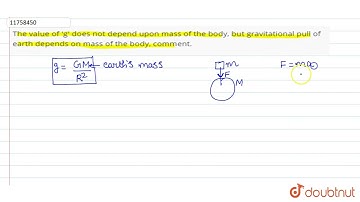 11758450
The value of 'g' does not depend upon mass of the body, but gravitational pull of
earth depends on mass of the body, comment.
g = GM ← earth's mass
R²
m
F
M
F = ma
doubtnut